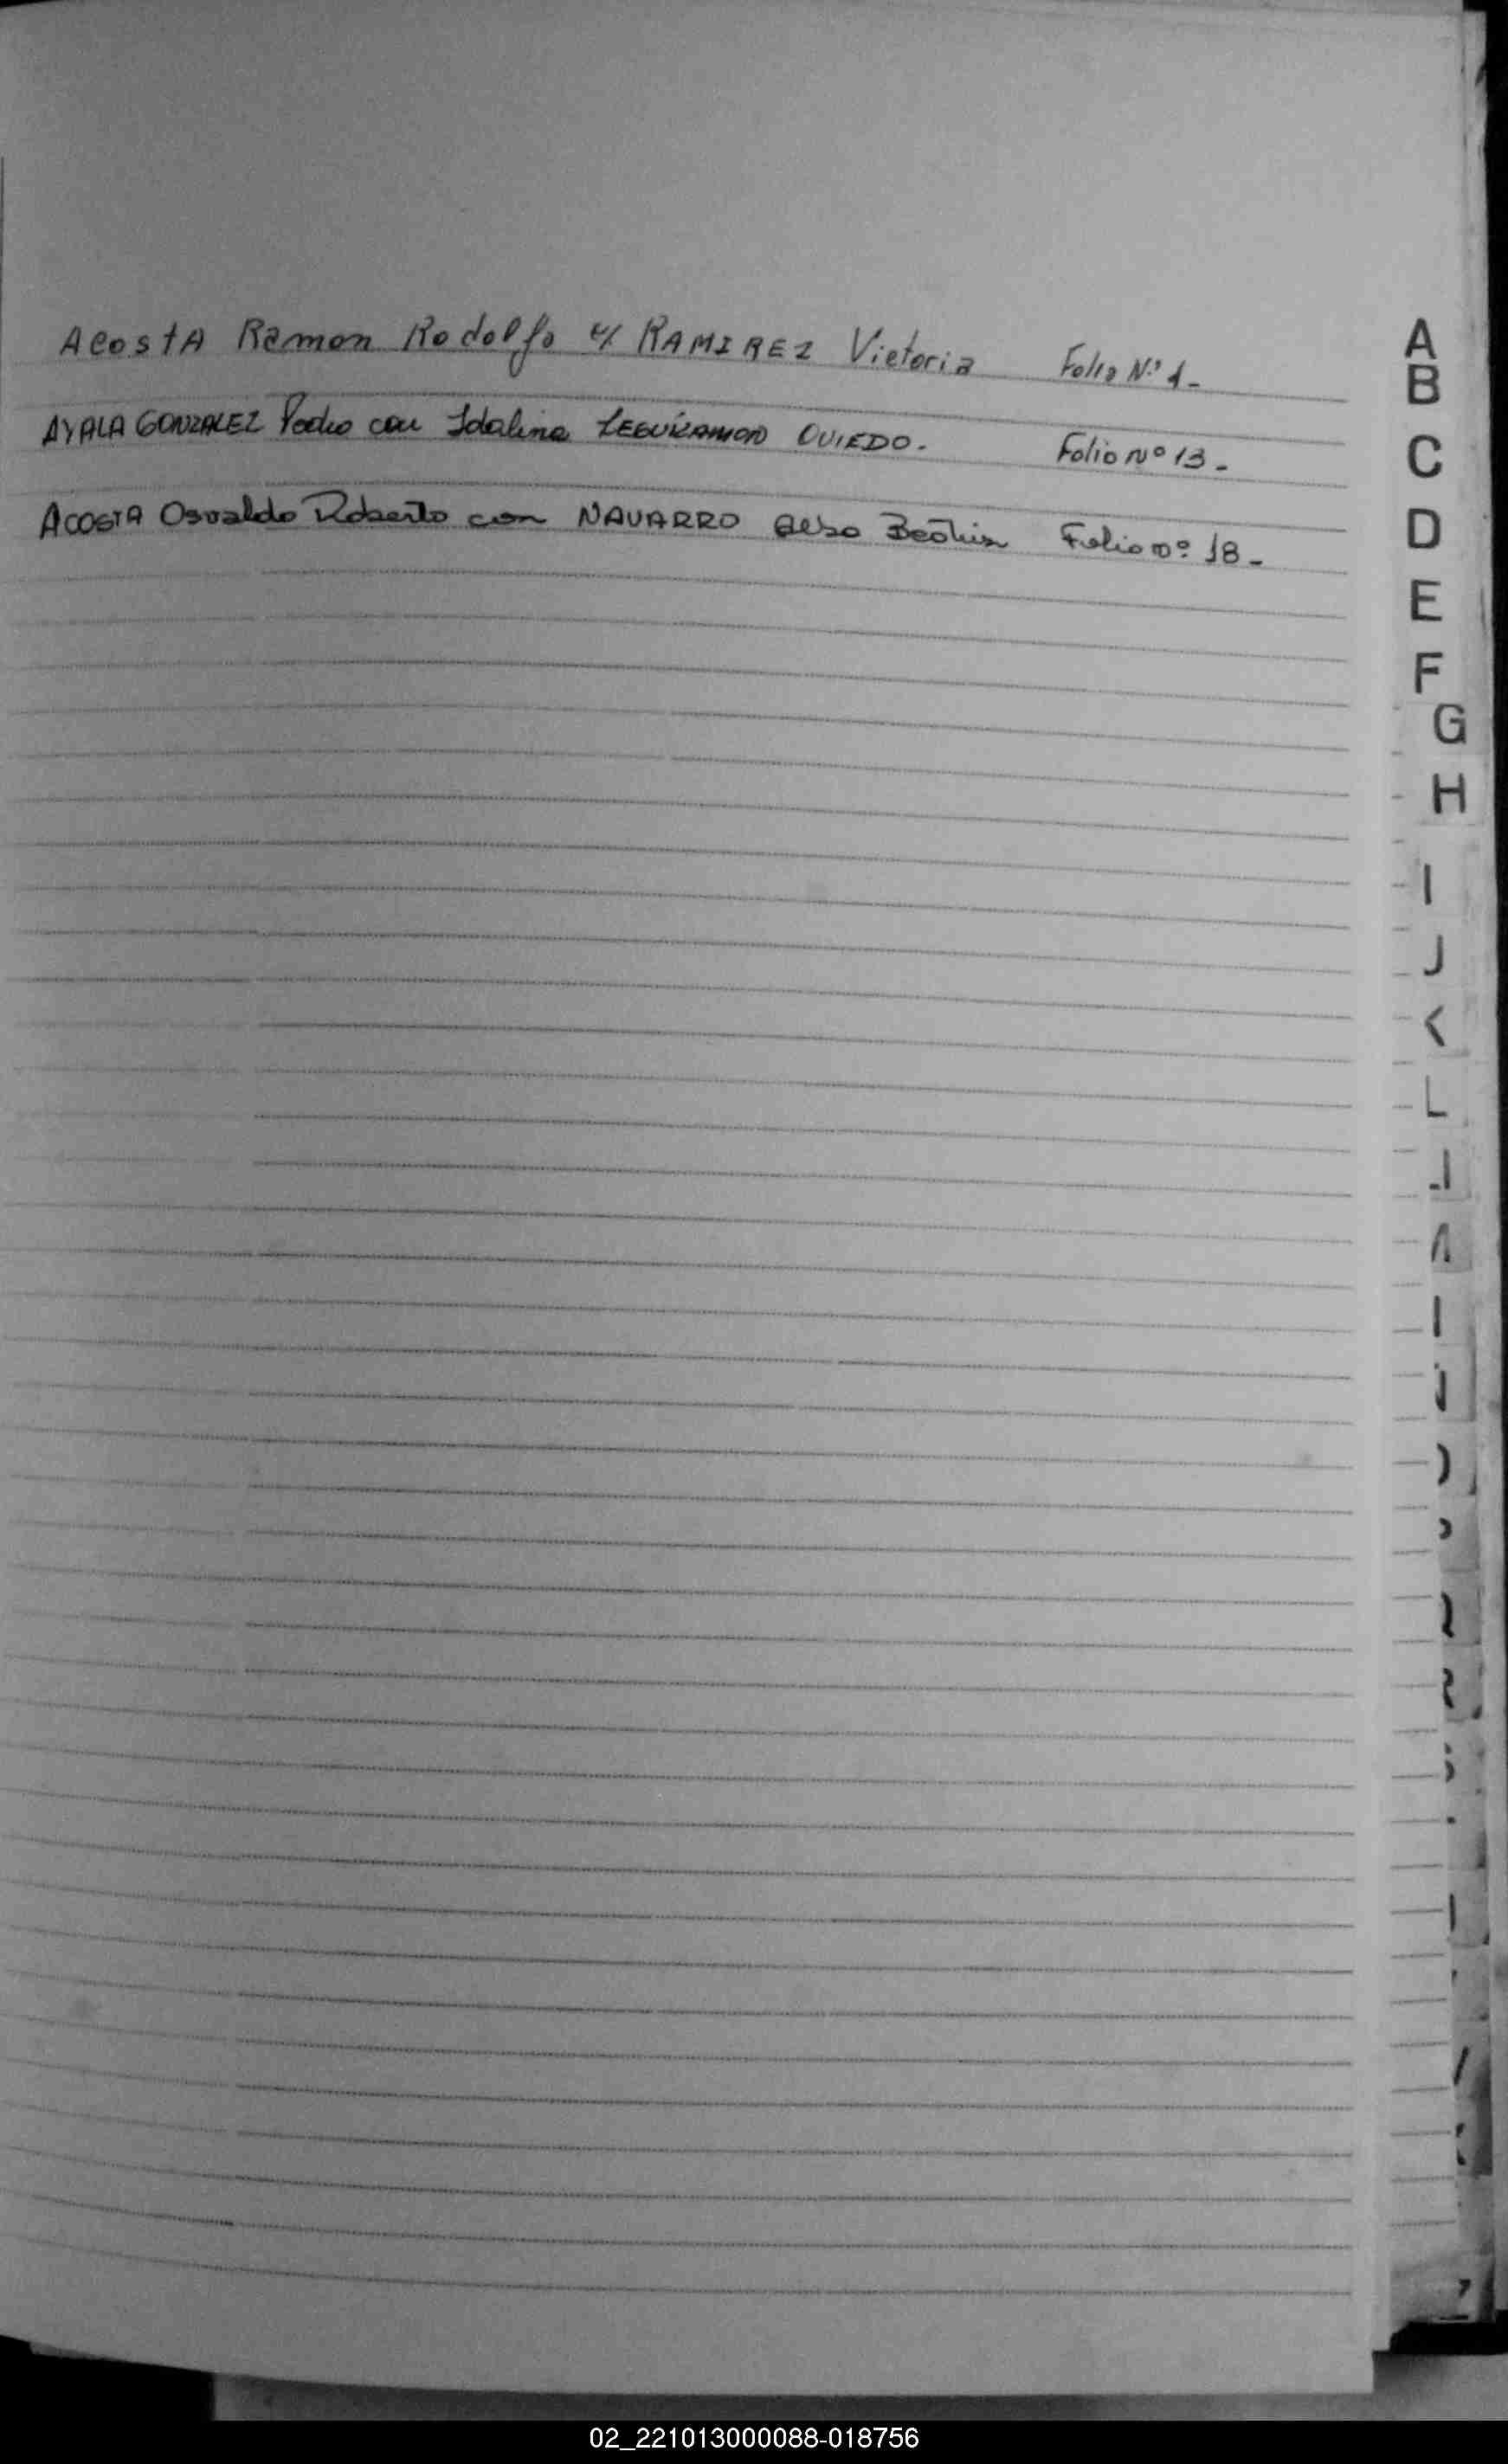 Acosta Ramon Rodolfo c/ RAMIREZ Victoria Folio N.º 1-
AYALA GONZALEZ Pedro con Idalina LEGUIZAMON OVIEDO. Folio Nº 13-
ACOSTA Osvaldo Roberto con NAVARRO Beatriz Folio nº 18-
A
B
C
D
E
F
G
H
I
J
K
L
02_221013000088-018756